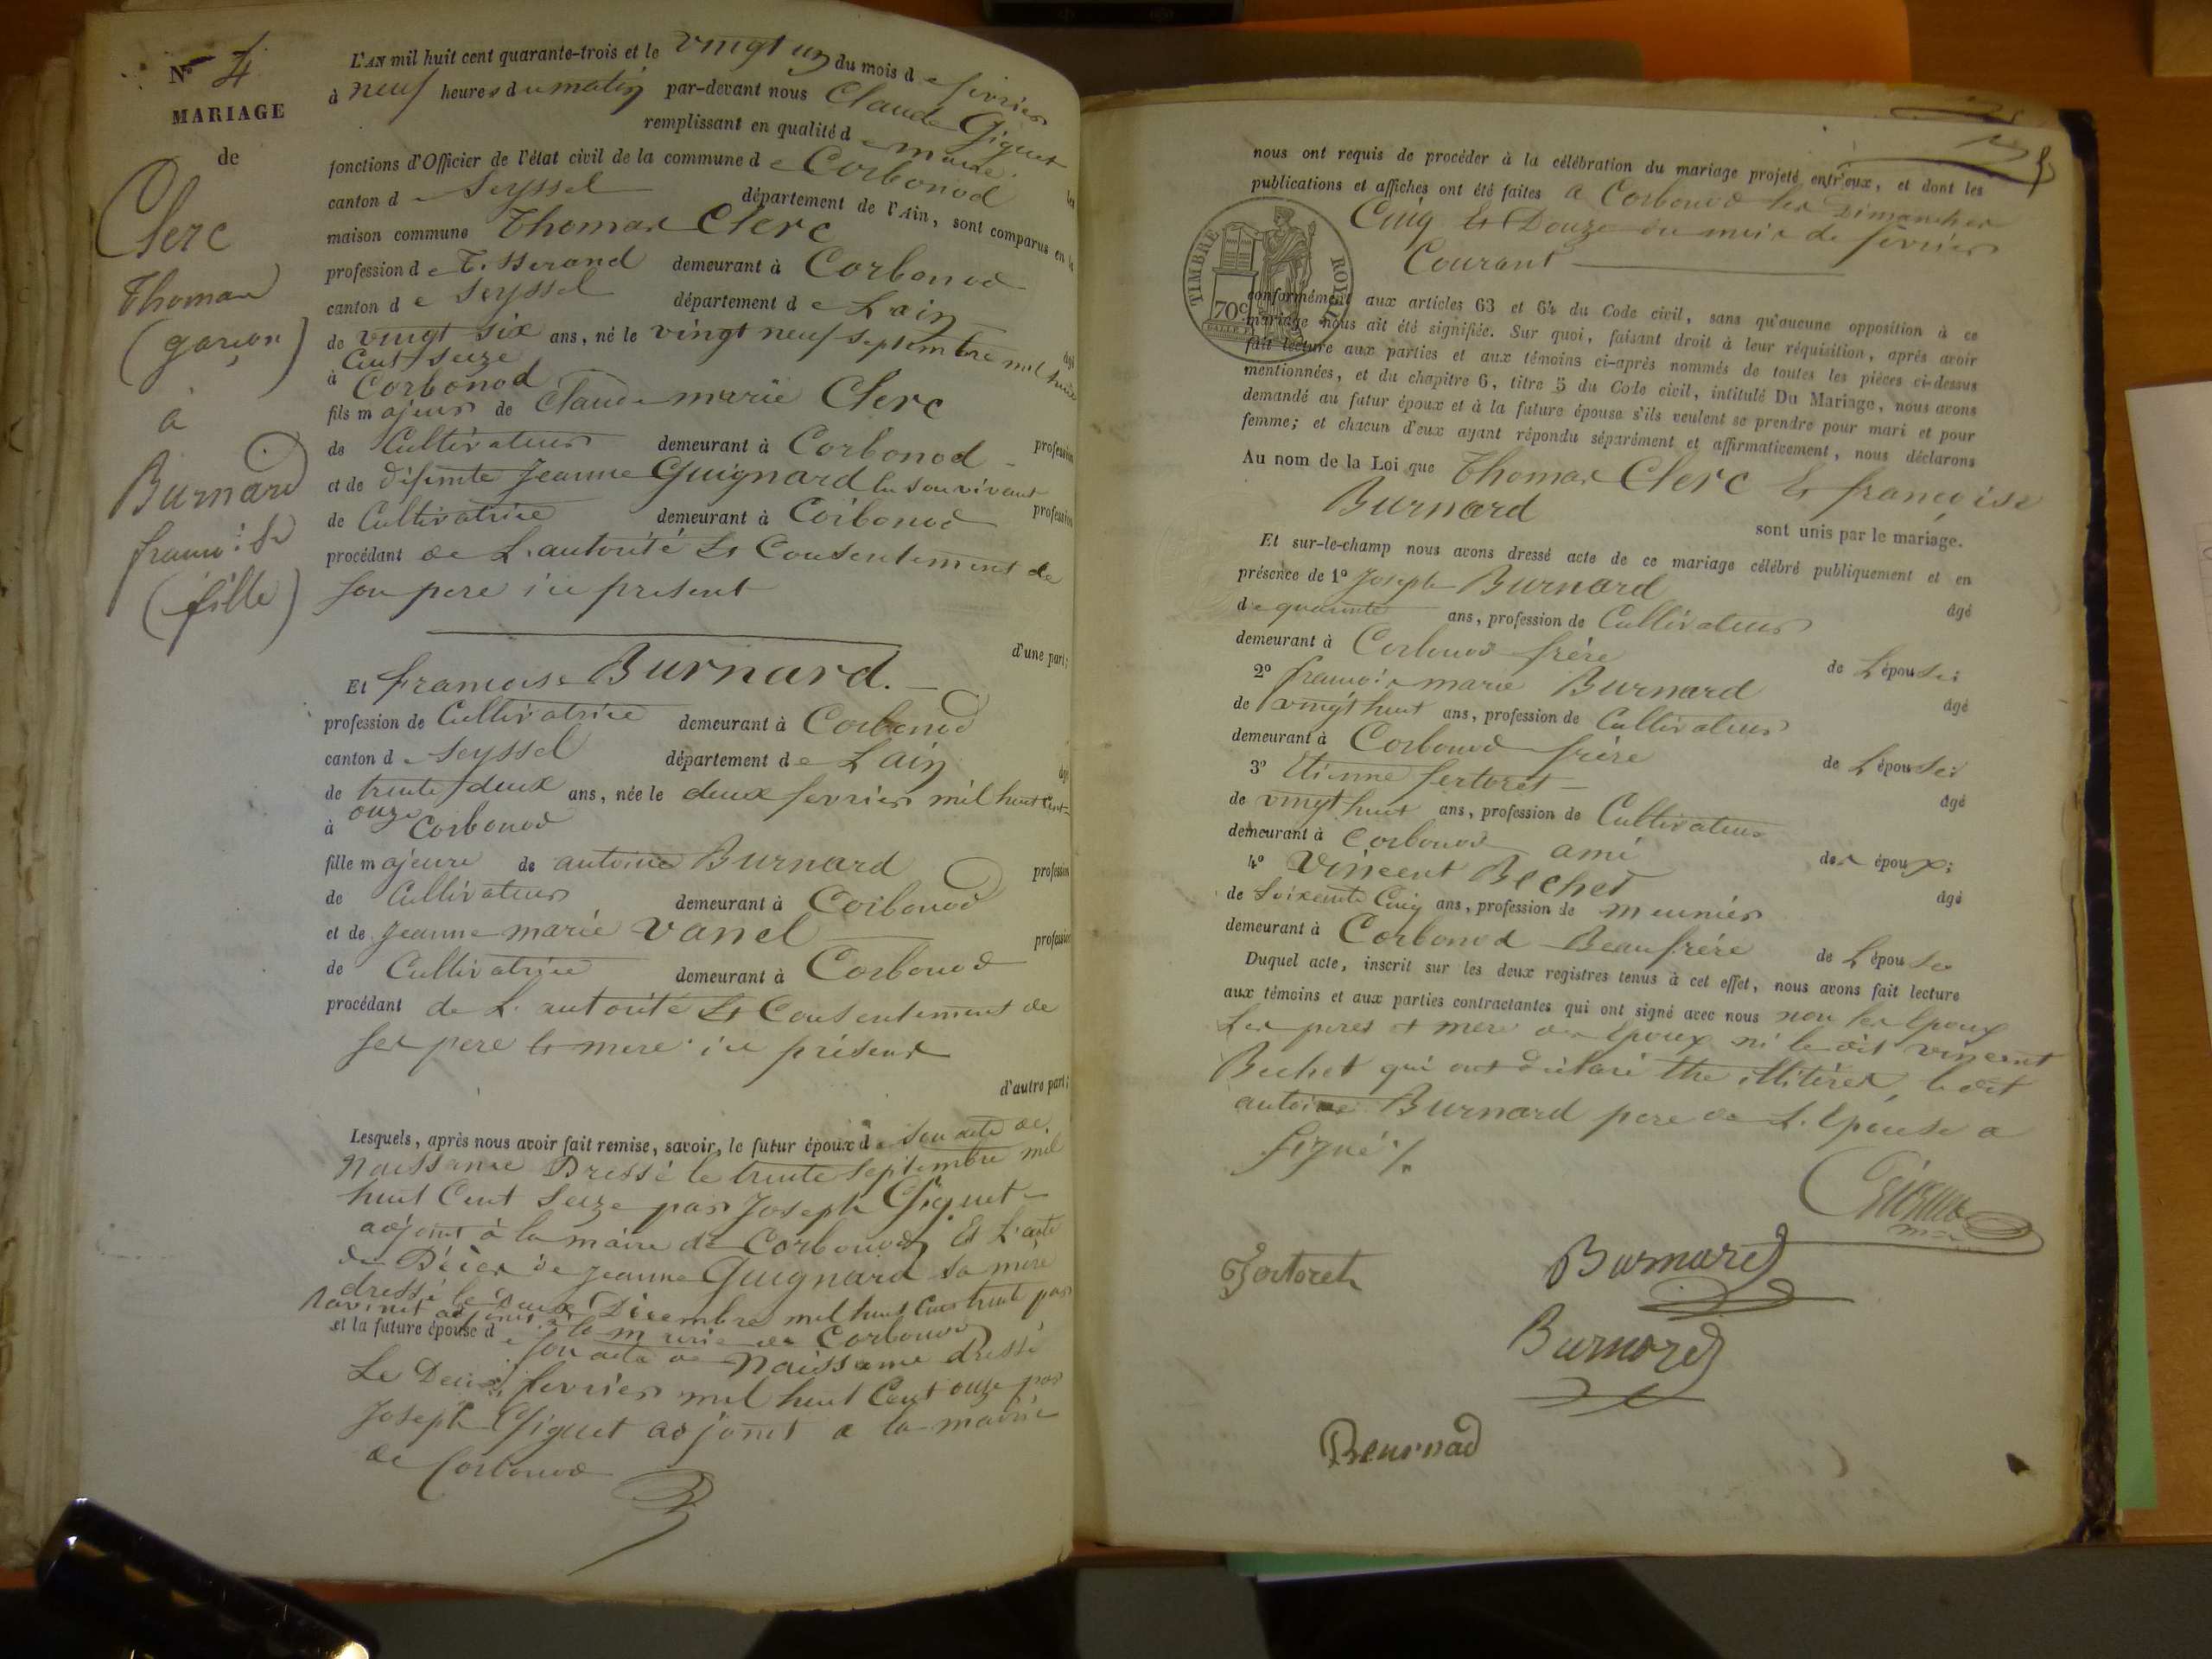 N° 4
MARIAGE
de
Clerc
Thomas
(garçon)
à
Burnard
françoise
(fille)
L'AN mil huit cent quarante-trois et le vingt un du mois de fevrier
à neuf heures du matin par-devant nous Claude Giguet
remplissant en qualité de maire les
fonctions d'Officier de l'état civil de la commune de Corbonod
canton de Seyssel département de l'Ain, sont comparus en la
maison commune Thomas Clerc
profession de Tisserand demeurant à Corbonod
canton de Seyssel département de Lain
âgé
de vingt six ans, né le vingt neuf septembre mil huit
Cent seize
à Corbonod
fils majeur de Claude marie Clerc
profession
de Cultivateur demeurant à Corbonod
et de défunte Jeanne Guignard en son vivant
profession
de Cultivatrice demeurant à Corbonod
procédant de L'autorité Et Consentement de
son pere ice present
d'une part;
Et françoise Burnard.
profession de Cultivatrice demeurant à Corbonod
canton de Seyssel département de Lain
âgé
de trente deux ans, née le deux fevrier mil huit Cent
onze
à Corbonod
fille majeure de antoine Burnard
profession
de Cultivateur demeurant à Corbonod
et de Jeanne marie Vanel
profession
de Cultivatrice demeurant à Corbonod
procédant de L'autorité Et Consentement de
ses pere Et mere ice présent
d'autre part;
Lesquels, après nous avoir fait remise, savoir, le futur époux de son acte de
Naissance Dressé le trente septembre mil
huit Cent Seize par Joseph Giguet
adjoint à la mairie de Corbonod Et L'acte
de Décès de Jeanne Guignard sa mère
dressé le Deux Décembre mil huit Cent trente par
Ravinet adjoint à la mairie de Corbonod
et la future épouse de son acte de Naissance dressé
Le Deux fevrier mil huit Cent onze par
Joseph Giguet adjoint a la mairie
de Corbonod
nous ont requis de procéder à la célébration du mariage projeté entr'eux, et dont les
publications et affiches ont été faites a Corbonod les Dimanches
Cinq Et Douze du mois de fevrier
Courant
TIMBRE ROYAL
70c
conformément aux articles 63 et 64 du Code civil, sans qu'aucune opposition à ce
mariage nous ait été signifiée. Sur quoi, faisant droit à leur réquisition, après avoir
fait lecture aux parties et aux témoins ci-après nommés de toutes les pièces ci-dessus
mentionnées, et du chapitre 6, titre 5 du Code civil, intitulé Du Mariage, nous avons
demandé au futur époux et à la future épouse s'ils veulent se prendre pour mari et pour
femme; et chacun d'eux ayant répondu séparément et affirmativement, nous déclarons
Au nom de la Loi que Thomas Clerc Et françoise
Burnard
sont unis par le mariage.
Et sur-le-champ nous avons dressé acte de ce mariage célébré publiquement et en
présence de 1° Joseph Burnard
âgé
de quarante ans, profession de Cultivateur
demeurant à Corbonod frère de Lépouse;
2° françois marie Burnard
âgé
de vingt huit ans, profession de Cultivateur
demeurant à Corbonod frère de Lépouse;
3° Etienne fertoret
âgé
de vingt huit ans, profession de Cultivateur
demeurant à Corbonod ami des époux;
4° Vincent Bechet
âgé
de Soixante Cinq ans, profession de meunier
demeurant à Corbonod Beaufrère de Lépouse
Duquel acte, inscrit sur les deux registres tenus à cet effet, nous avons fait lecture
aux témoins et aux parties contractantes qui ont signé avec nous non les Epoux
Les peres et mere des époux ni le dit vincent
Bechet qui ont déclaré être illitérés, le dit
antoine Burnard pere de L'Epouse a
signé ./.
Fertoret
Burnard
Burnard
Beurnad